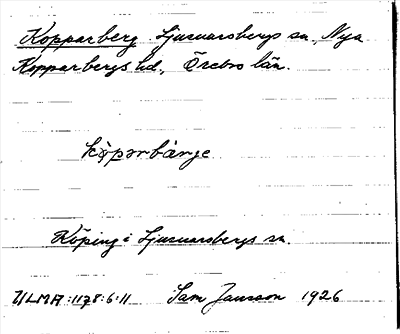 Kopparberg Ljusnarsbergs sn, Nya
Kopparbergs hd., Örebro län.
köpərbàrgе
Köping i Ljusnarsbergs sn.
ULMA:1178:6:11 Sam Jansson 1926